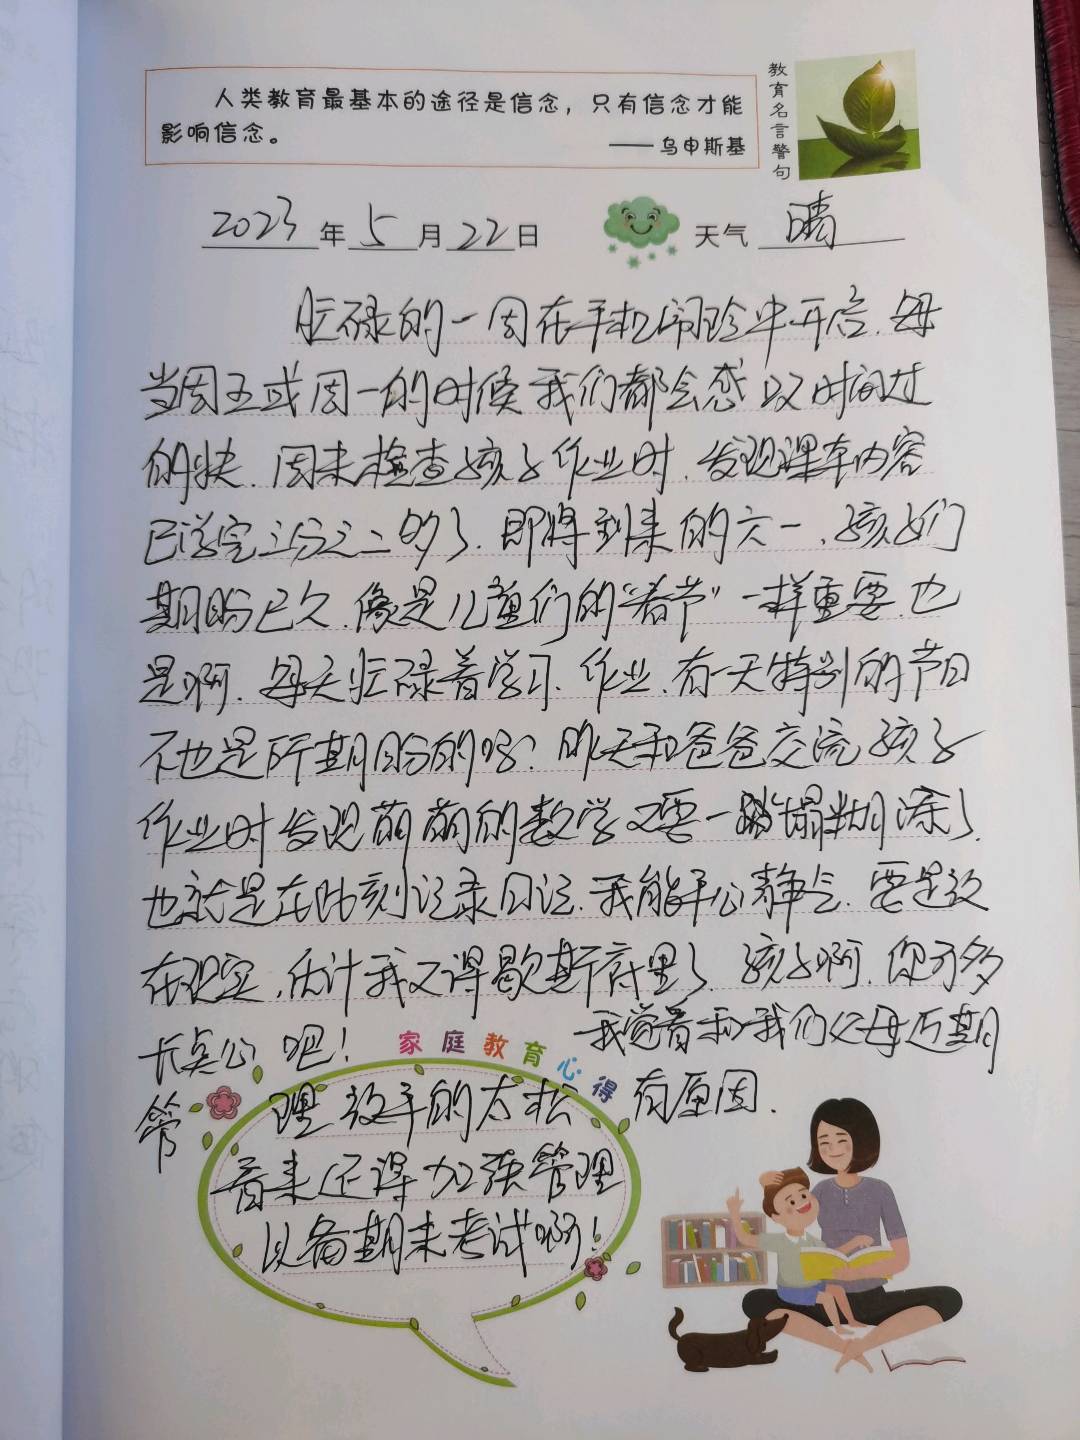 人类教育最基本的途径是信念，只有信念才能
影响信念。
——乌申斯基
教育名言警句
2023年5月22日
天气 晴
忙碌的一周在手机闹铃中开启.每
当周五或周一的时候我们都会感叹时间过
的快.周末检查孩子作业时.发现课本内容
已学完三分之二多了.即将到来的六一、孩子们
期盼已久.像是儿童们的“春节”一样重要.也
是啊.每天忙碌着学习、作业、有一天特别的节日
不也是所期盼的吗？昨天和爸爸交流孩子
作业时发现萌萌的数学又要一塌糊涂了.
也就是在此刻记录日记.我能平心静气.要是放
在现实,估计我又得歇斯底里了.孩子啊.你可多
长点心吧！
家庭教育心得
我觉着和我们父母近期
管理放手的太松有原因.
看来还得加强管理
以备期末考试啊！